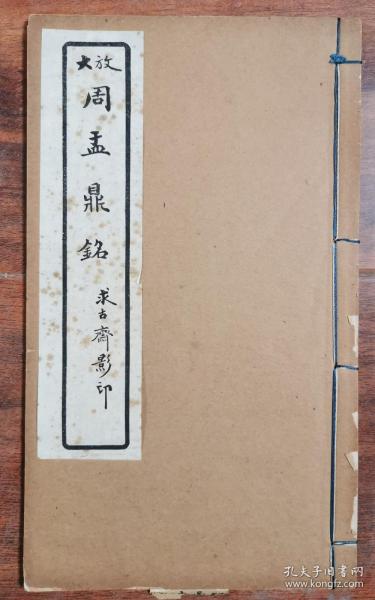 放大
周盂鼎銘
求古齋影印
孔夫子旧书网